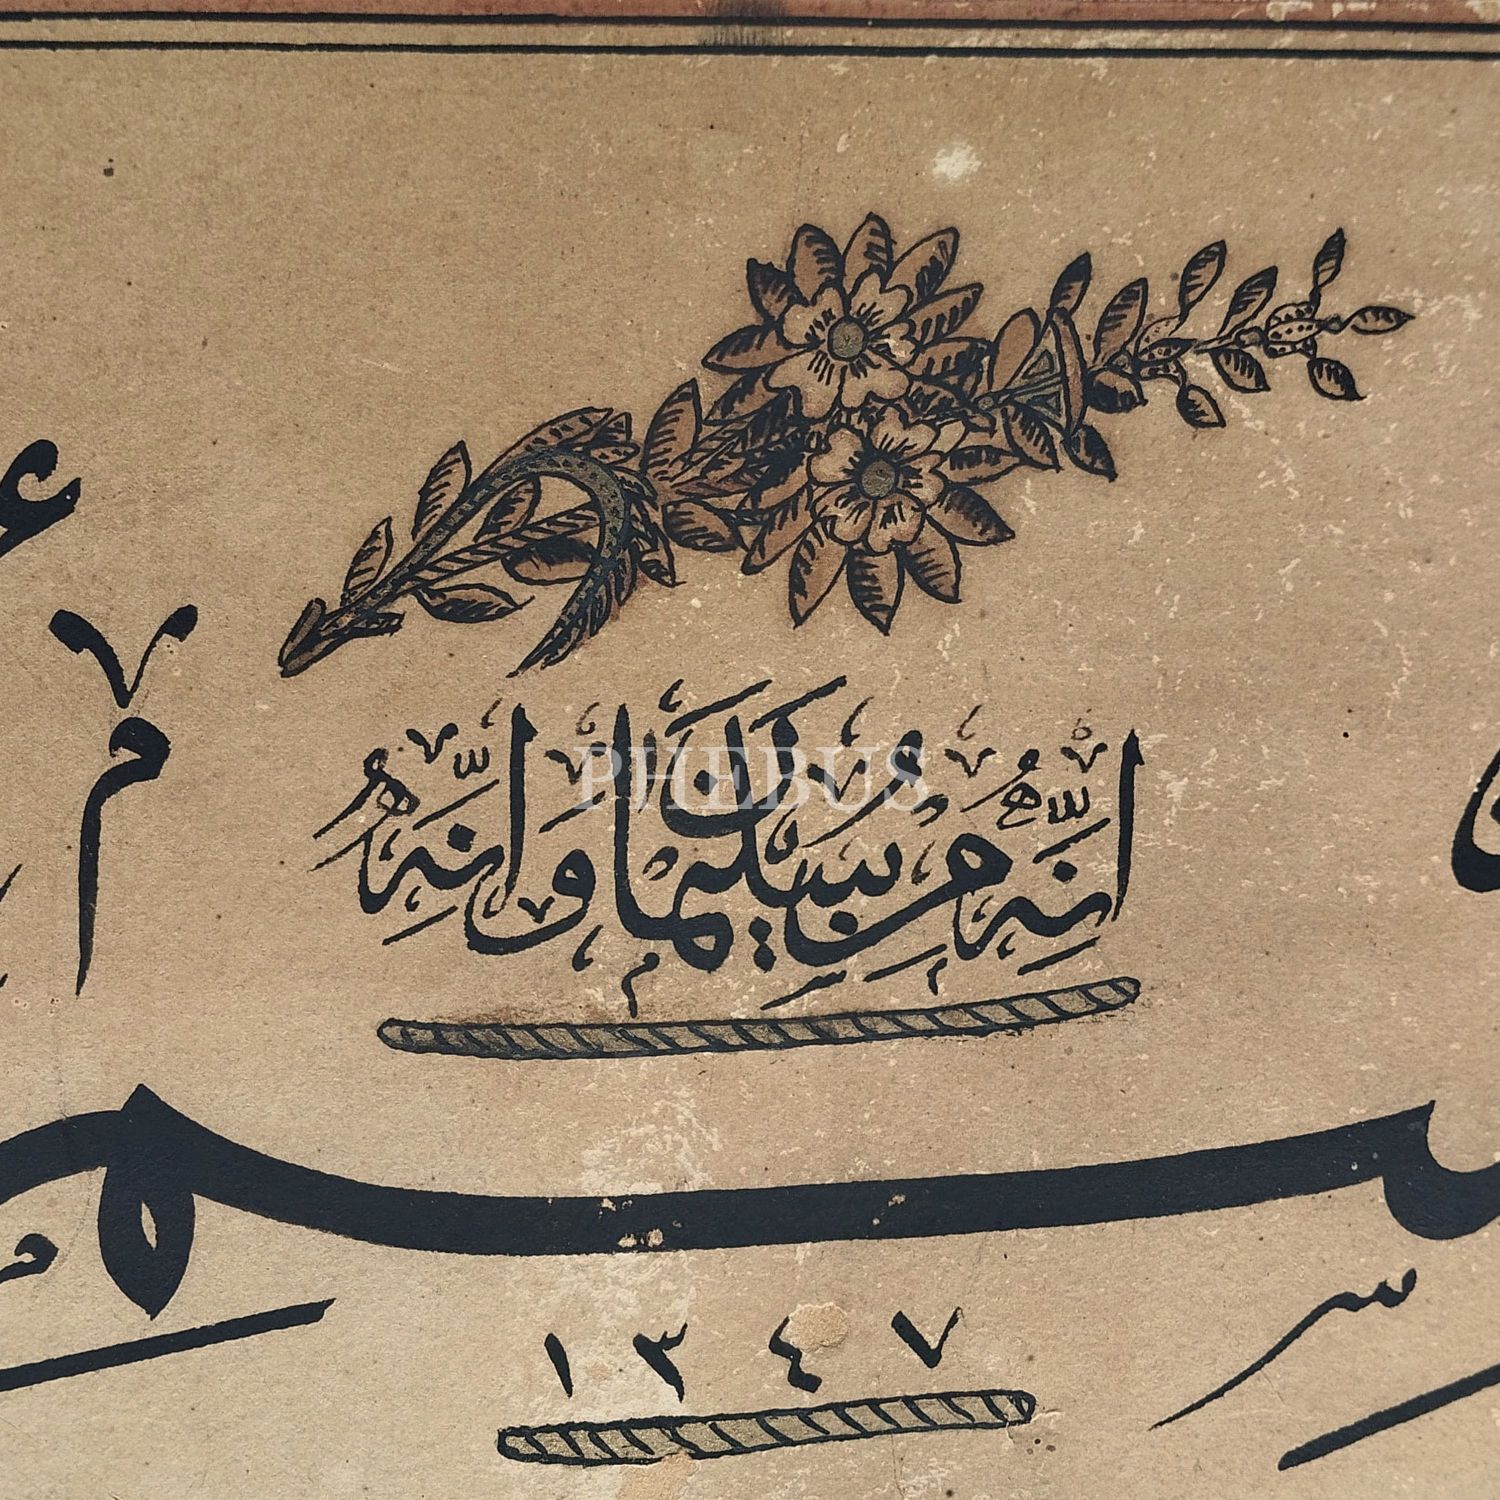 انه من سليمان وانه
PHEBUS
١٣٤٧